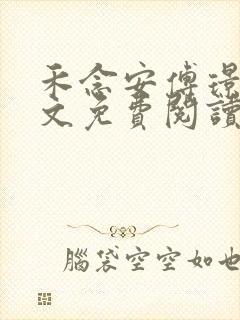 禾念安傅璟
文免費閱讀
腦袋空空如也